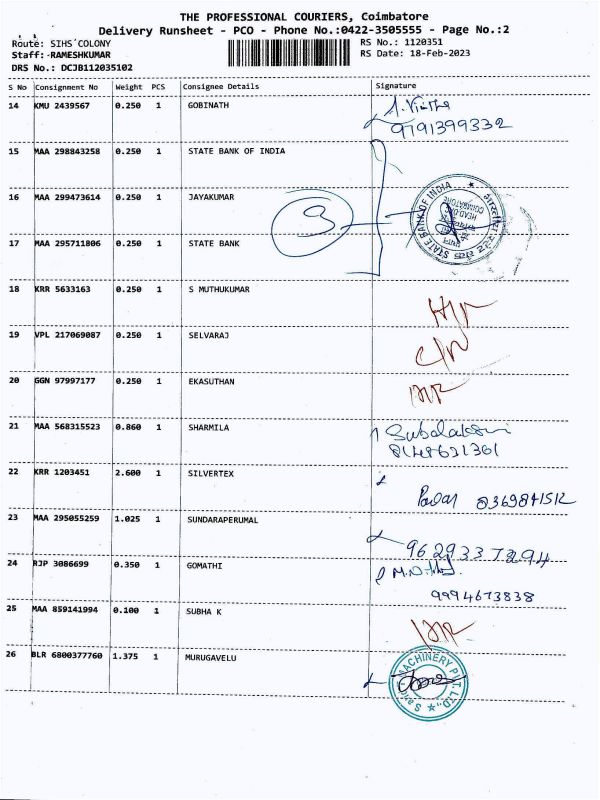 THE PROFESSIONAL COURIERS, Coimbatore
Delivery Runsheet - PCO - Phone No.:0422-3505555 - Page No.:2
Route: SIHS COLONY RS No.: 1120351
Staff:-RAMESHKUMAR RS Date: 18-Feb-2023
DRS No.: DCJB112035102
S No Consignment No Weight PCS Consignee Details Signature
14 KMU 2439567 0.250 1 GOBINATH
9791399332
15 MAA 298843258 0.250 1 STATE BANK OF INDIA
16 MAA 299473614 0.250 1 JAYAKUMAR
3
STATE BANK OF INDIA
COIMBATORE
17 MAA 295711806 0.250 1 STATE BANK
18 KRR 5633163 0.250 1 S MUTHUKUMAR
19 VPL 217069087 0.250 1 SELVARAJ
20 GGN 97997177 0.250 1 EKASUTHAN
21 MAA 568315523 0.860 1 SHARMILA
8148631361
22 KRR 1203451 2.600 1 SILVERTEX
23 MAA 295055259 1.025 1 SUNDARAPERUMAL
9629337294
24 RJP 3086699 0.350 1 GOMATHI
9994673838
25 MAA 859141994 0.100 1 SUBHA K
26 BLR 6800377760 1.375 1 MURUGAVELU
MACHINERY PVT. LTD.